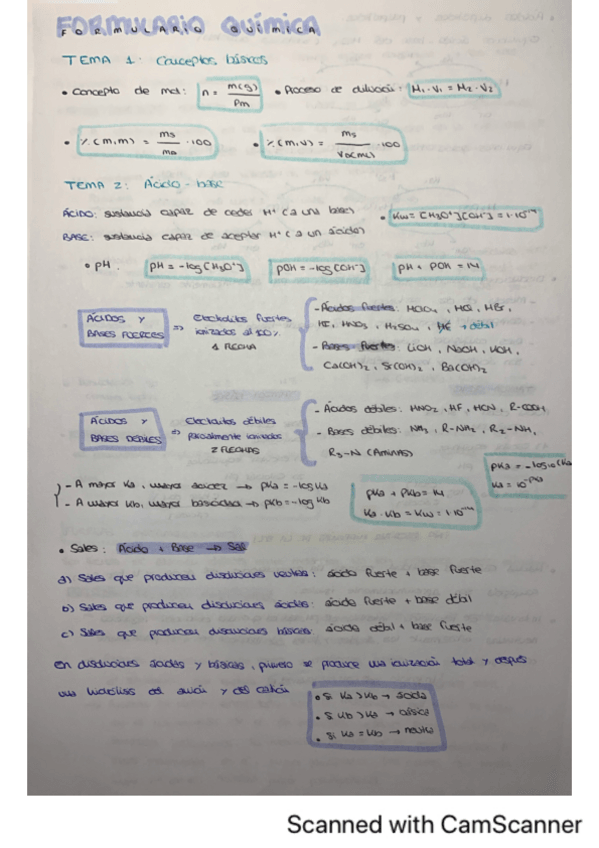 FORMULARIO QUÍMICA
TEMA 1: Conceptos básicos
• Concepto de mol: n = m(g) / Pm • Proceso de dilución: M1·V1 = M2·V2
• %(m,m) = ms / md ·100 • %(m,v) = ms / Vd(mL) ·100
TEMA 2: Ácido-base
ÁCIDO: sustancia capaz de ceder H+ (a una base)
• Kw = [H3O+][OH-] = 1·10^-14
BASE: sustancia capaz de aceptar H+ (a un ácido)
• pH. pH = -log[H3O+] pOH = -log[OH-] pH + pOH = 14
ÁCIDOS Y BASES FUERTES => Electrolitos fuertes
ionizados al 100%
1 FLECHA
- Ácidos fuertes: HClO4, HCl, HBr,
HI, HNO3, H2SO4, HF → débil
- Bases fuertes: LiOH, NaOH, KOH,
Ca(OH)2, Sr(OH)2, Ba(OH)2
ÁCIDOS Y BASES DÉBILES => Electrolitos débiles
parcialmente ionizados
2 FLECHAS
- Ácidos débiles: HNO2, HF, HCN, R-COOH
- Bases débiles: NH3, R-NH2, R2-NH,
R3-N (AMINAS)
pKa = -log10(Ka
Ka = 10^-pKa
- A mayor Ka, mayor acidez → pKa = -log Ka
- A mayor Kb, mayor basicidad → pKb = -log Kb
pKa + pKb = 14
Ka · Kb = Kw = 1·10^-14
• Sales: Ácido + Base → Sal
a) Sales que producen disoluciones neutras: ácido fuerte + base fuerte
b) Sales que producen disoluciones ácidas: ácido fuerte + base débil
c) Sales que producen disoluciones básicas: ácido débil + base fuerte
en disoluciones ácidas y básicas, primero se produce una ionización total y después
una hidrólisis del anión y del catión
• Si Ka > Kb → ácida
• Si Kb > Ka → básica
• Si Ka = Kb → neutra
Scanned with CamScanner